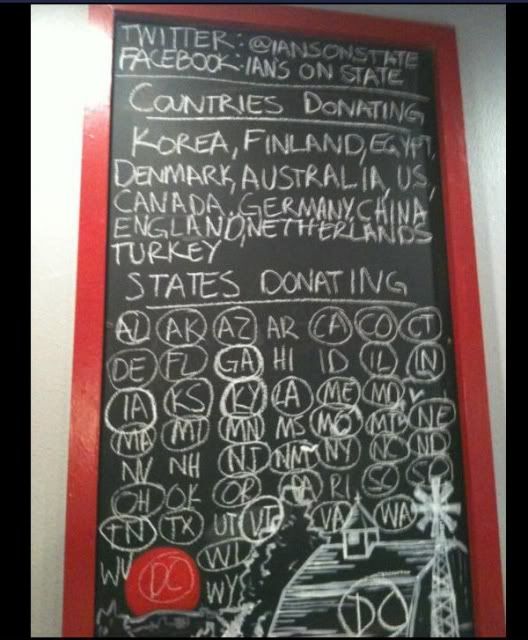 TWITTER: @IANSONSTATE
FACEBOOK: IAN'S ON STATE
COUNTRIES DONATING
KOREA, FINLAND, EGYPT,
DENMARK, AUSTRALIA, US,
CANADA, GERMANY, CHINA
ENGLAND, NETHERLANDS
TURKEY
STATES DONATING
AL AK AZ AR CA CO CT
DE FL GA HI ID IL IN
IA KS KY LA ME MD
MA MI MN MS MO MT NE
NV NH NJ NM NY NC ND
OH OK OR PA RI SC SD
TN TX UT VT VA WA
WV DC WI
WY DC